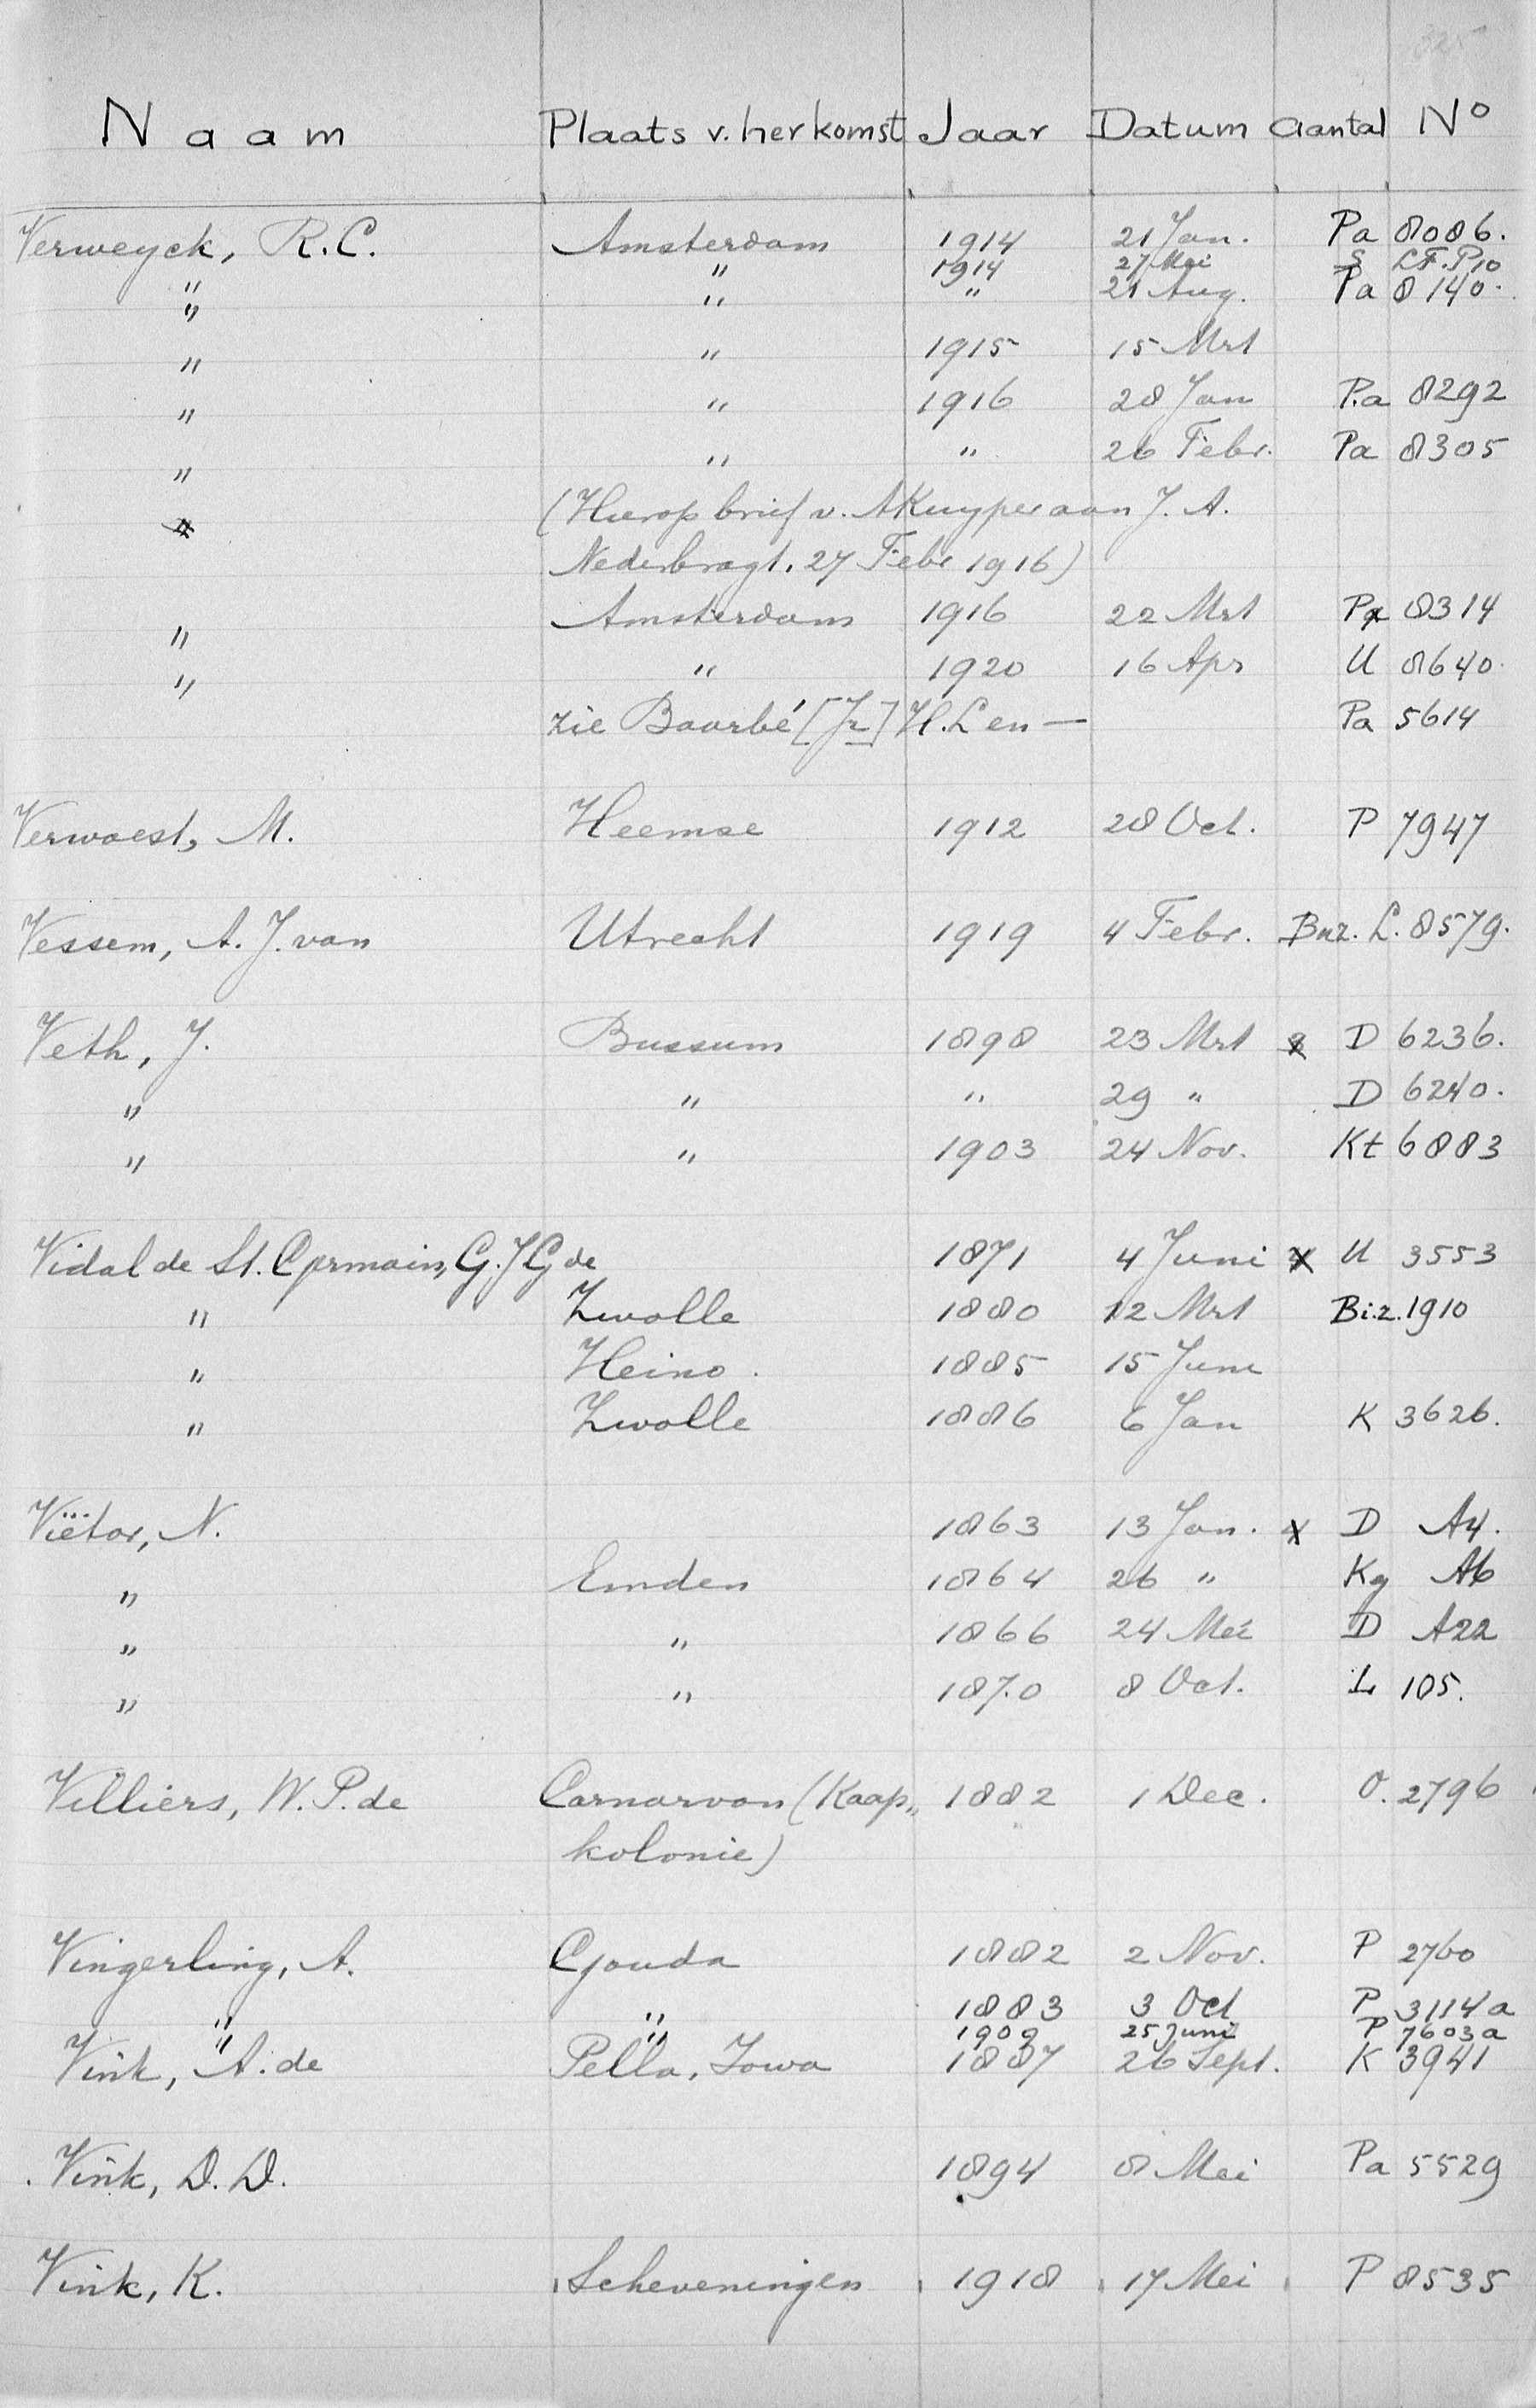 825
Naam Plaats v. herkomst Jaar Datum Aantal No
Verweyck, R.C. Amsterdam 1914 21 Jan. Pa 8086.
" " 1914 27 Mei S LF. P10
" " " 21 Aug. Pa 8140.
" " 1915 15 Mrt
" " 1916 28 Jan P.a 8292
" " " 26 Febr. Pa 8305
(Hierop brief v. AKuyper aan J. A.
Nederbragt. 27 Febr 1916)
" Amsterdam 1916 22 Mrt Pa 8314
" " 1920 16 Apr U 8640.
zie Baarbé [Jr] H.L en — Pa 5614
Verwoest, M. Heemse 1912 28 Oct. P 7947
Vessem, A. J. van Utrecht 1919 4 Febr. Bnz. L. 8579.
Veth, J. Bussum 1898 23 Mrt D 6236.
" " " 29 " D 6240.
" " 1903 24 Nov. Kt 6883
Vidal de St. Germain, G.J.G de 1871 4 Juni U 3553
" Zwolle 1880 12 Mrt Bi.z. 1910
" Heino. 1885 15 Juni
" Zwolle 1886 6 Jan K 3626.
Viëtor, N. 1863 13 Jan. D A4.
" Emden 1864 26 " Kg A6
" " 1866 24 Mei D A22
" " 1870 8 Oct. L 105.
Villiers, W. P. de Carnarvon (Kaap„ 1882 1 Dec. O. 2796
kolonie)
Vingerling, A. Gouda 1882 2 Nov. P 2760
" " 1883 3 Oct P 3114a
" " 1909 25 Juni P 7603a
Vink, A. de Pella, Iowa 1887 26 Sept. K 3941
Vink, D. D. 1894 8 Mei Pa 5529
Vink, K. Scheveningen 1918 17 Mei P 8535